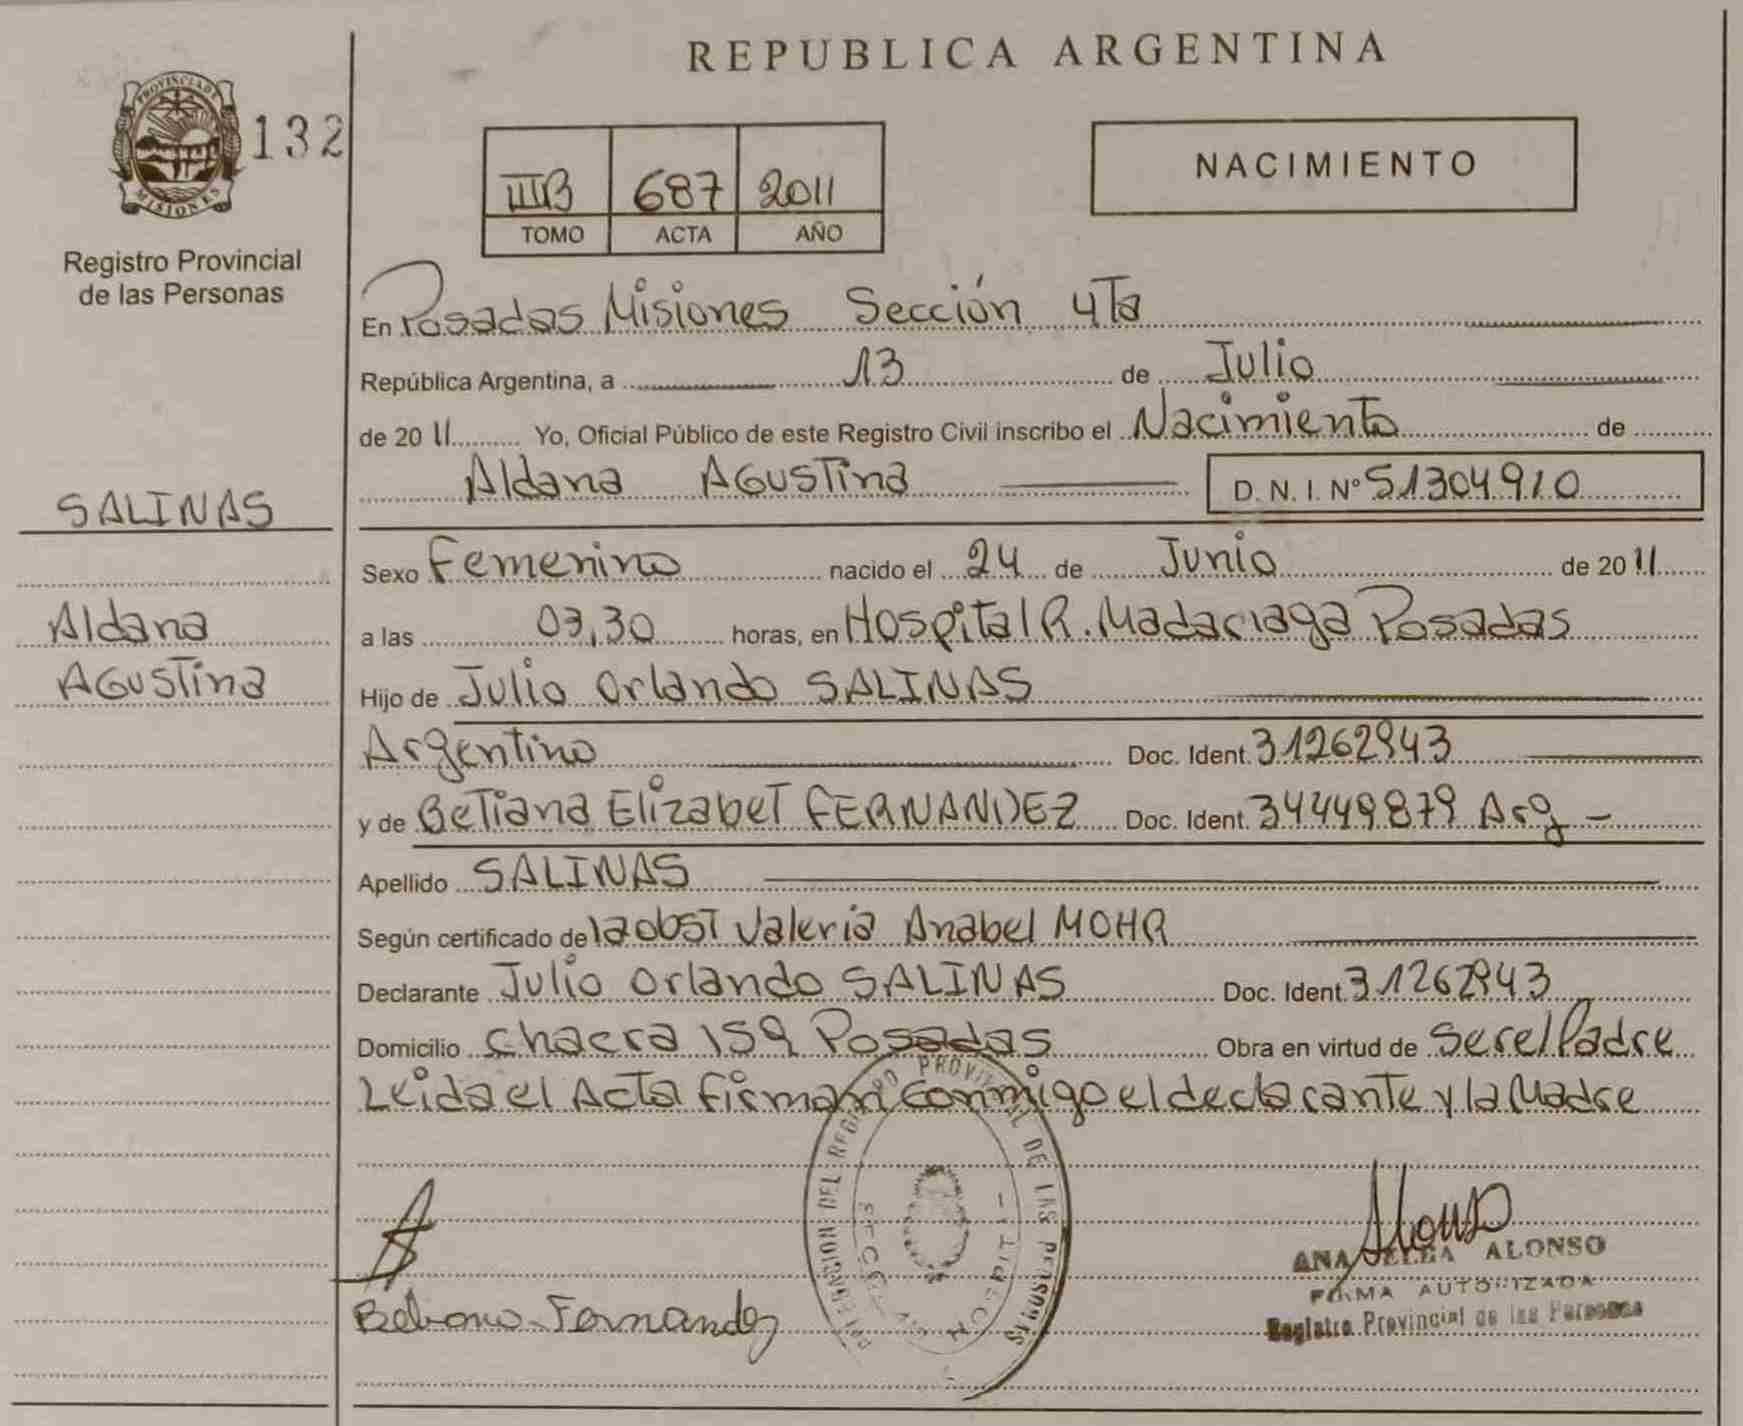 REPUBLICA ARGENTINA
PROVINCIA DE
MISIONES
132
Registro Provincial
de las Personas
IIIB 687 2011
TOMO ACTA AÑO
NACIMIENTO
En Posadas Misiones Sección 4Ta
República Argentina, a 13 de Julio
de 2011 Yo, Oficial Público de este Registro Civil inscribo el Nacimiento de
Aldana Agustina D. N. I. Nº 51304910
SALINAS
Aldana
Agustina
Sexo Femenino nacido el 24 de Junio de 2011
a las 03,30 horas, en Hospital R. Madariaga Posadas
Hijo de Julio Orlando SALINAS
Argentino Doc. Ident. 31262943
y de Betiana Elizabet FERNANDEZ Doc. Ident. 34449879 Arg -
Apellido SALINAS
Según certificado de la obst Valeria Anabel MOHR
Declarante Julio Orlando SALINAS Doc. Ident. 31262943
Domicilio Chacra 159 Posadas Obra en virtud de ser el Padre
Leida el Acta firman conmigo el declarante y la Madre
DEL REGISTRO PROVINCIAL DE LAS PERSONAS
Alonso
ANA ALONSO
FIRMA AUTORIZADA
Registro Provincial de las Personas
Fernandez